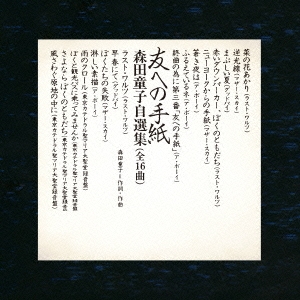 菜の花あかり(ラスト・ワルツ)
逆光線(マザー・スカイ)
まぶしい夏(グッドバイ)
赤いダウンパーカーぼくのともだち(ラスト・ワルツ)
ニューヨークからの手紙(マザー・スカイ)
蒼き夜は(ア・ボーイ)
ふるえているネ(ア・ボーイ)
終曲の為に第三番「友への手紙」(ア・ボーイ)
友への手紙
森田童子自選集(全16曲)
森田童子=作詞・作曲
ラスト・ワルツ(ラスト・ワルツ)
早春にて(グッドバイ)
淋しい素描(ア・ボーイ)
ぼくたちの失敗(マザー・スカイ)
雨のクロール(東京カテドラル聖マリア大聖堂録音盤)
ぼくと観光バスに乗ってみませんか(東京カテドラル聖マリア大聖堂録音盤)
さよならぼくのともだち(東京カテドラル聖マリア大聖堂録音盤)
風さわぐ原地の中に(東京カテドラル聖マリア大聖堂録音盤)